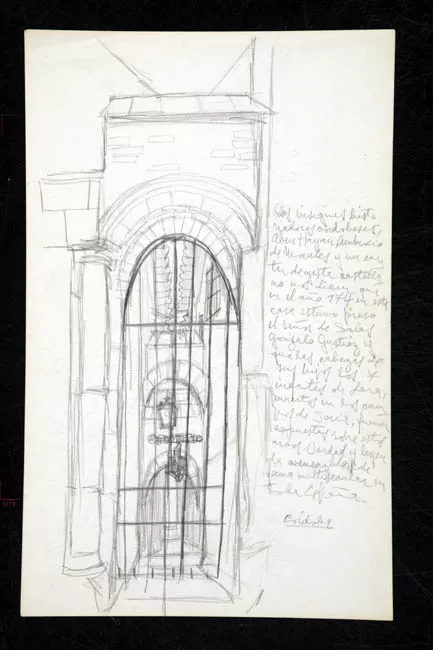 Dos insignes histo
riadores cordobeses,
Aben Hayan Ambrosio
de Morales y un can
tar de gesta castella
no nos dicen que
en el año 974 en esta
casa estuvo preso
el señor de Salas
Gonzalo Gustioz y
que las cabezas de
sus hijos los 7
infantes de Lara,
muertos en los cam
pos de Soria, fueron
expuestas sobre estos
arcos. Verdad y leyen
da venerables de
fama multisecular en
toda España
Córdoba